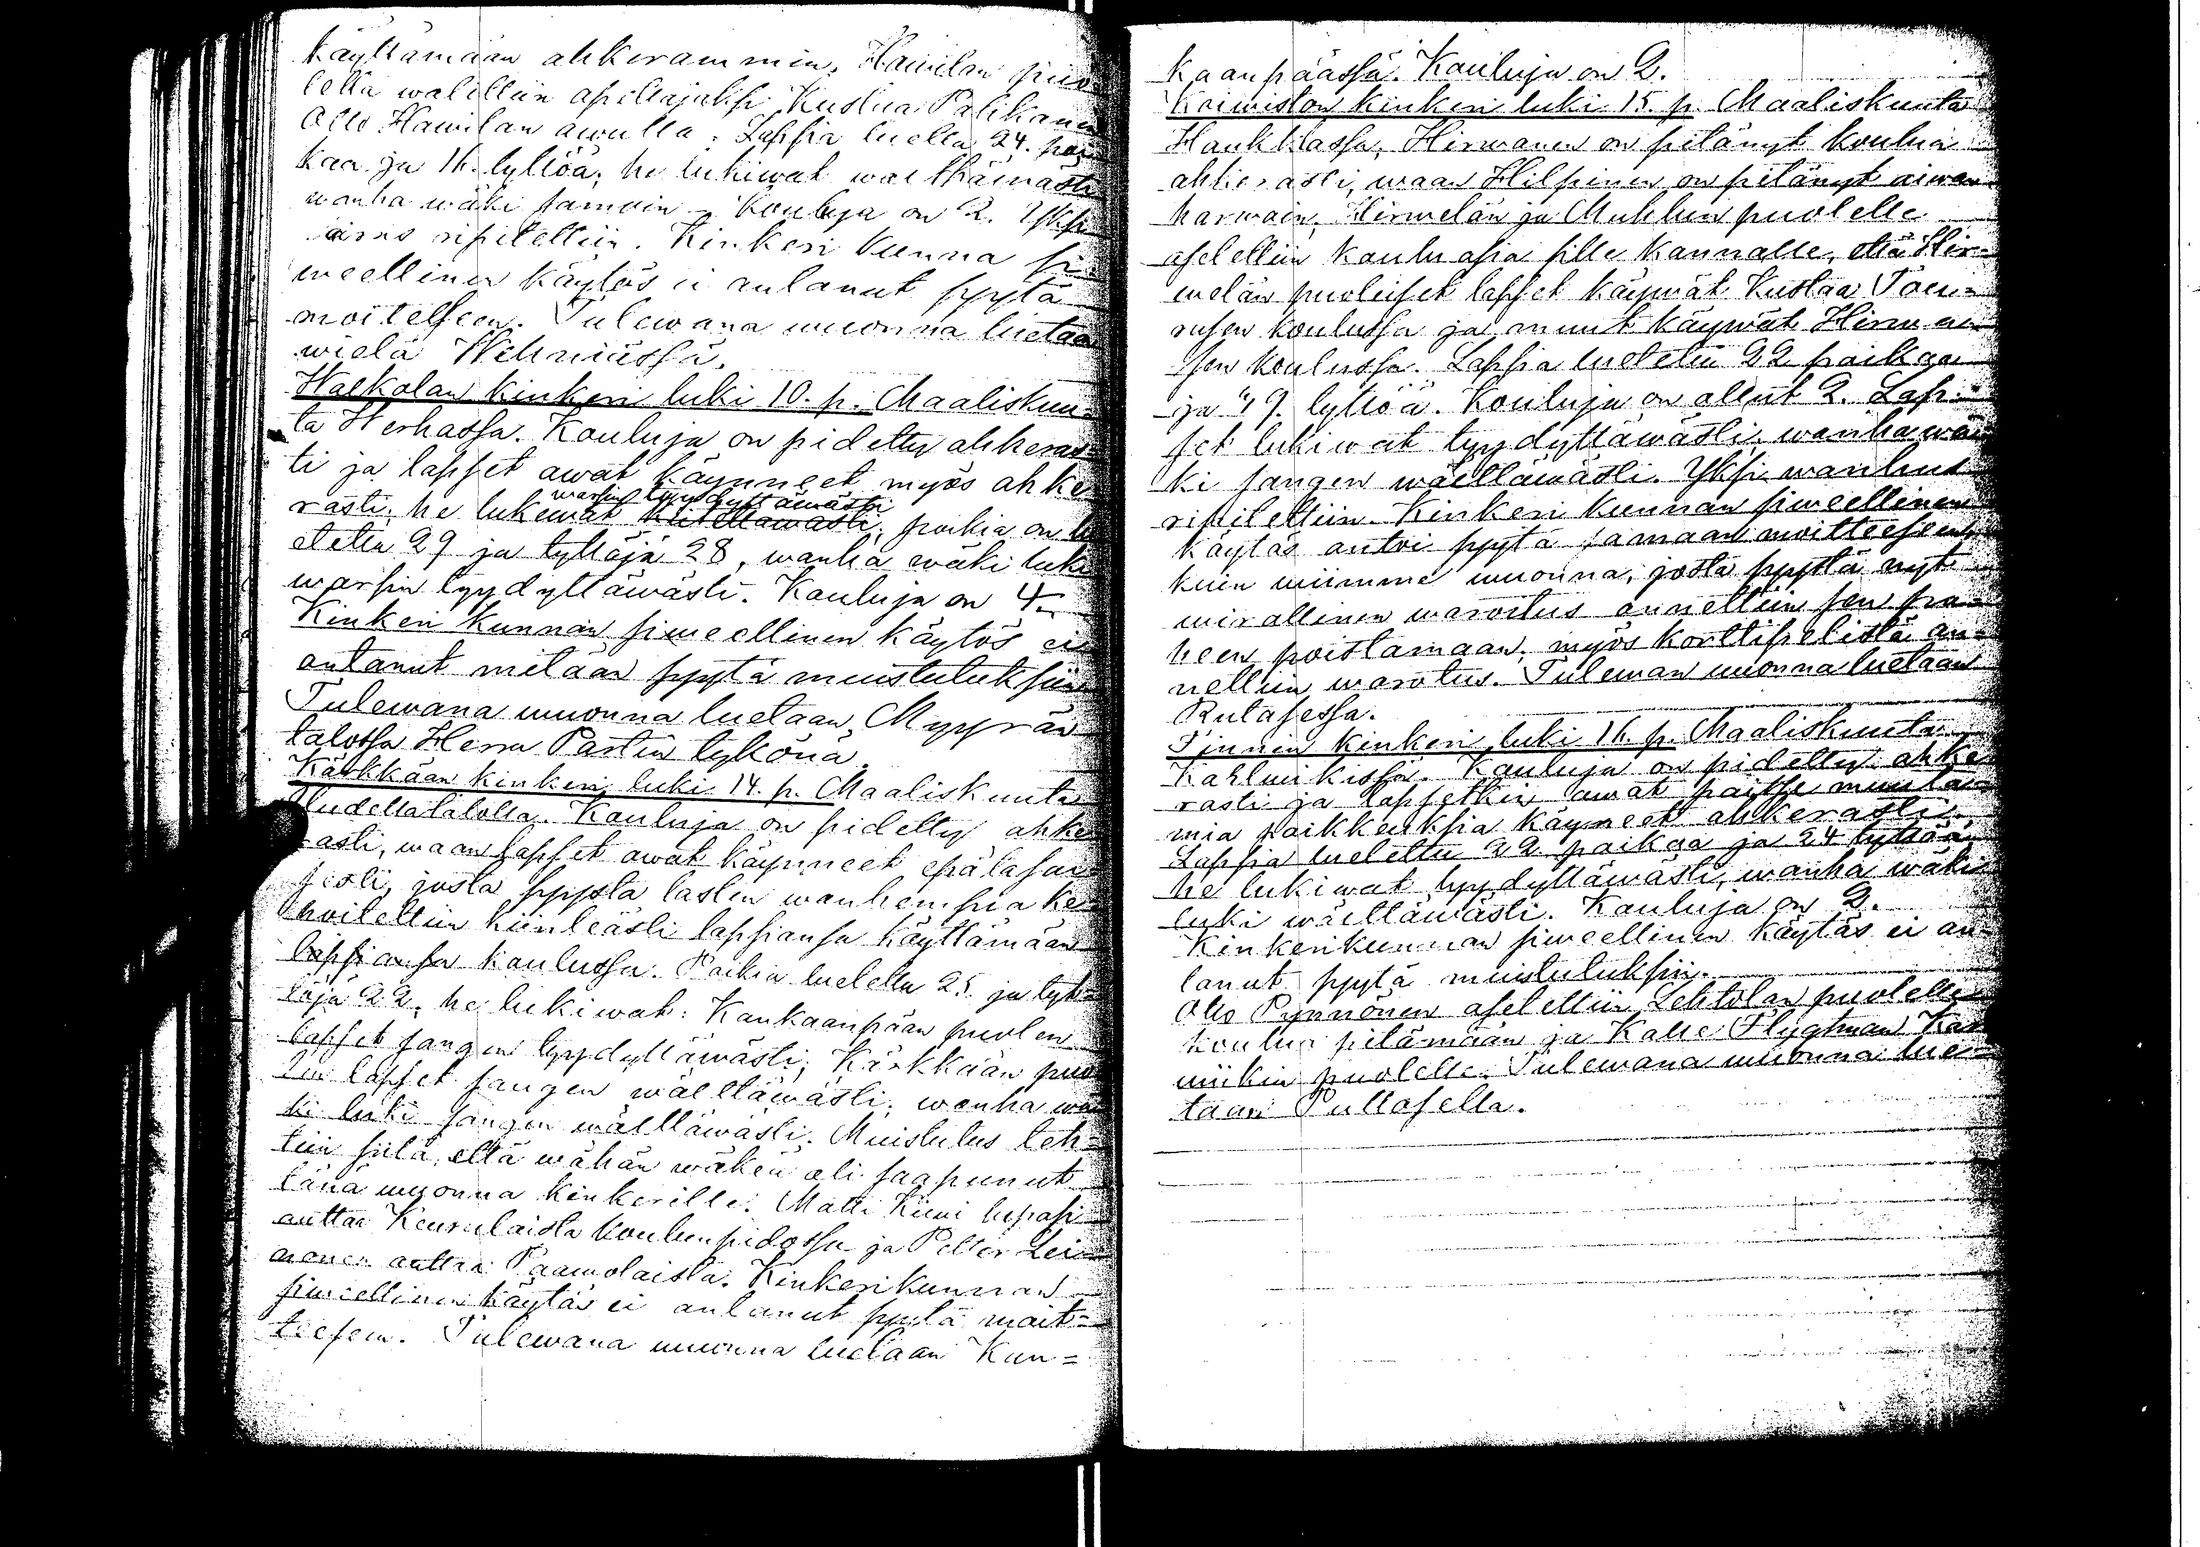 käyttämään ahkerammin. Hawilan puo-
lella walittiin apittajaksi Kustaa Palikanen
Otto Hawilan awulla. Lapsia luella 24. poi-
kaa ja 16. tyttöä; he lukiwat wälttäwästi
wanha wäki samoin. Kouluja on 2. Yksi
äiras ripitettiin. Kinkeri kunna si-
weellinen käytös ei antanut syytä
moitelseen. Tulewana wuonna luetaan
wielä Wehniässä.
Walkolan kinkeri luki 10. p. Maaliskuu-
ta Herhassa. Kouluja on pidetty ahkeras-
ti ja lapset owat käynneet myös ahke-
warsin tyydyttäwästi
rasti; he lukewat kiitettäwästi; poikia on lu
etettu 29 ja tyttöjä 28, wanha wäki luki
warsin tyydyttäwästi. Kouluja on 4.
Kinkeri kunnan siweellinen käytös ei
antanut mitään syytä muistutuksiin
Tulewana wuonna luetaan Myyrän
talossa Herra Partin tykönä.
Kärkkään kinkeri luki 14. p. Maaliskuuta
Uudellatalolla. Kouluja on pidetty ahke
rasti, waan lapset owat käynneet epätasai
sesti, josta syystä lasten wanhempia ke-
hoitettiin kiinteästi lapsiansa käyttämään
lapsiansa koulussa. Poikia luetettu 25 ja tyt-
töjä 22, he lukiwat: Kankaanpään puolen
lapset sangen tyydyttäwästi; Kärkkään puo
len lapset sangen wälttäwästi; wanha wä
ki luki sangen wälttäwästi. Muistutus teh-
tiin siitä, että wähän wäkeä oli saapunut
tänä wuonna kinkerille. Matti Kiwi lupasi
auttaa Keurulaista koulunpidossa ja Petter Lei-
nonen auttaa Paawolaista. Kinkerikunnan
siweellinen käytös ei antanut syytä moit-
teesen. Tulewana wuonna luetaan Kan=
kaanpäässä. Kouluja on 2.
Koiwiston kinkeri luki 15. p. Maaliskuuta
Haukklassa. Hirwanen on pitänyt koulua
ahkerasti, waan Hilpinen on pitänyt aiwan
harwain. Hirwelän ja Muhlun puolelle
asetettiin kouluasia sille kannalle, että Hir-
welän puoleiset lapset käywät Kustaa Toeu-
rusen koulussa ja muut käywät Hirwa-
sen koulussa. Lapsia luetettu 22 poikaa
ja 19. tyttöä. Kouluja on ollut 2. Lap-
set lukiwat tyydyttäwästi, wanha wä
ki sangen wälttäwästi. Yksi wanhus
ripitettiin. Kinkeri kunnan siweellinen
käytös antoi syytä samaan moitteesen,
kuin wiimme wuonna, josta syystä nyt
wirallinen warotus annettiin sen pa-
heen poistamaan; myös korttipelistä an-
nettiin warotus. Tulewan wuonna luetaan
Rutasessa.
Pinnin kinkeri luki 16. p. Maaliskuuta
Kahlwikissa. Kouluja on pidetty ahke
rasti ja lapsetkin owat paitse muuta-
mia poikkeuksia käyneet ahkerasti.
Lapsia luetettu 22 poikaa ja 24 tyttöä,
he lukiwat tyydyttäwästi, wanha wäki
luki wälttäwästi. Kouluja on 2.
Kinkerikunnan siweellinen käytös ei an-
tanut syytä muistutuksiin.
Otto Pynnönen asetettiin Lehtolan puolelle
koulua pitämään ja Kalle Flygtman Kah
wiikin puolelle. Tulewana wuonna lue-
taan Pullasella.